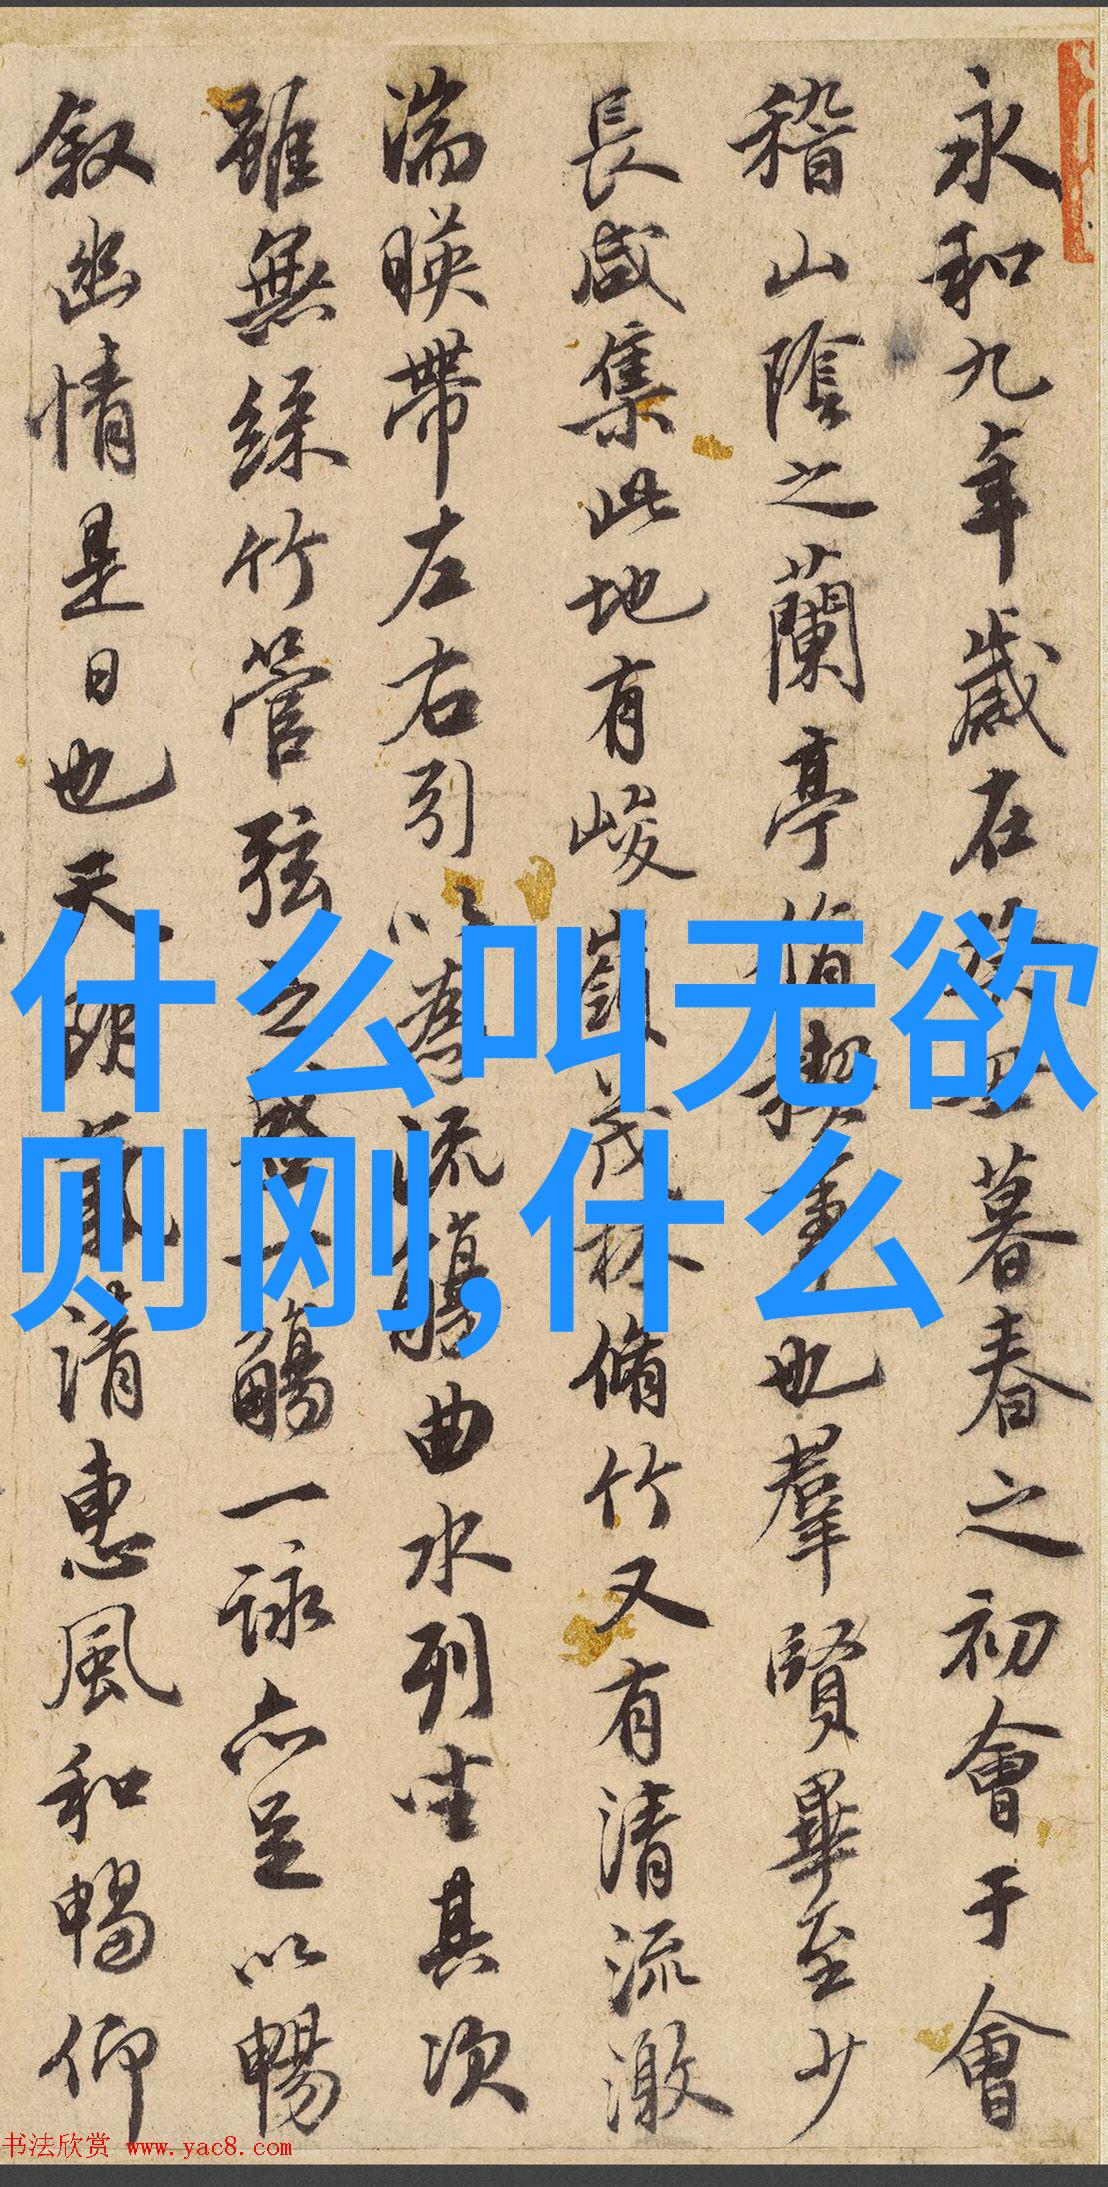 永和九年歲在癸丑暮春之初會于會
稽山陰之蘭亭脩稧事也羣賢畢至少
長咸集此地有峻嶺茂林脩竹又有清流激
湍暎帶左右引以為流觴曲水列坐其次
雖無絲竹管弦之盛一觴一詠亦足以暢
叙幽情是日也天朗氣清惠風和暢仰
什么叫无欲
则刚,什么
书法欣赏 www.yac8.com